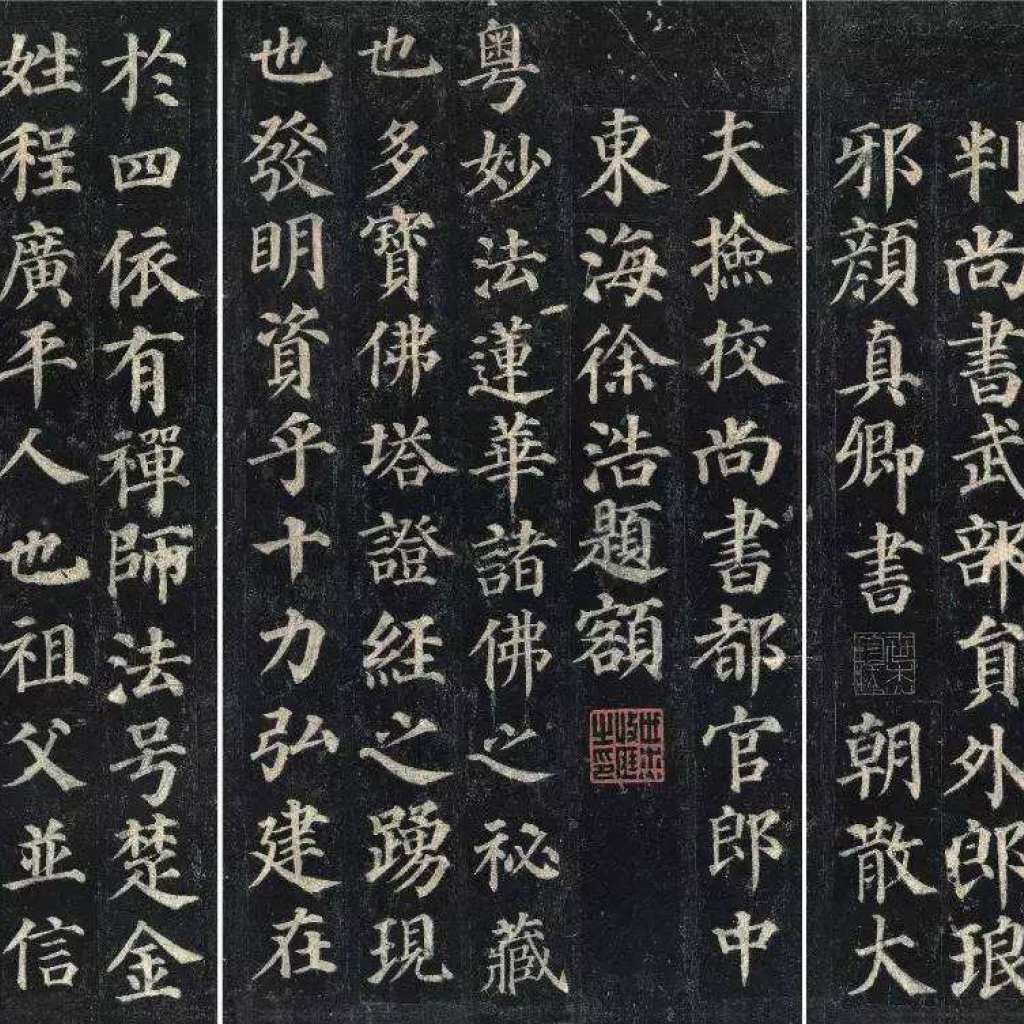 判尚書武部員外郎琅
邪顏真卿書朝散大
夫撿挍尚書都官郎中
東海徐浩題額
粵妙法蓮華諸佛之秘藏
也多寶佛塔證經之踴現
也發明資乎十力弘建在
於四依有禪師法号楚金
姓程廣平人也祖父並信